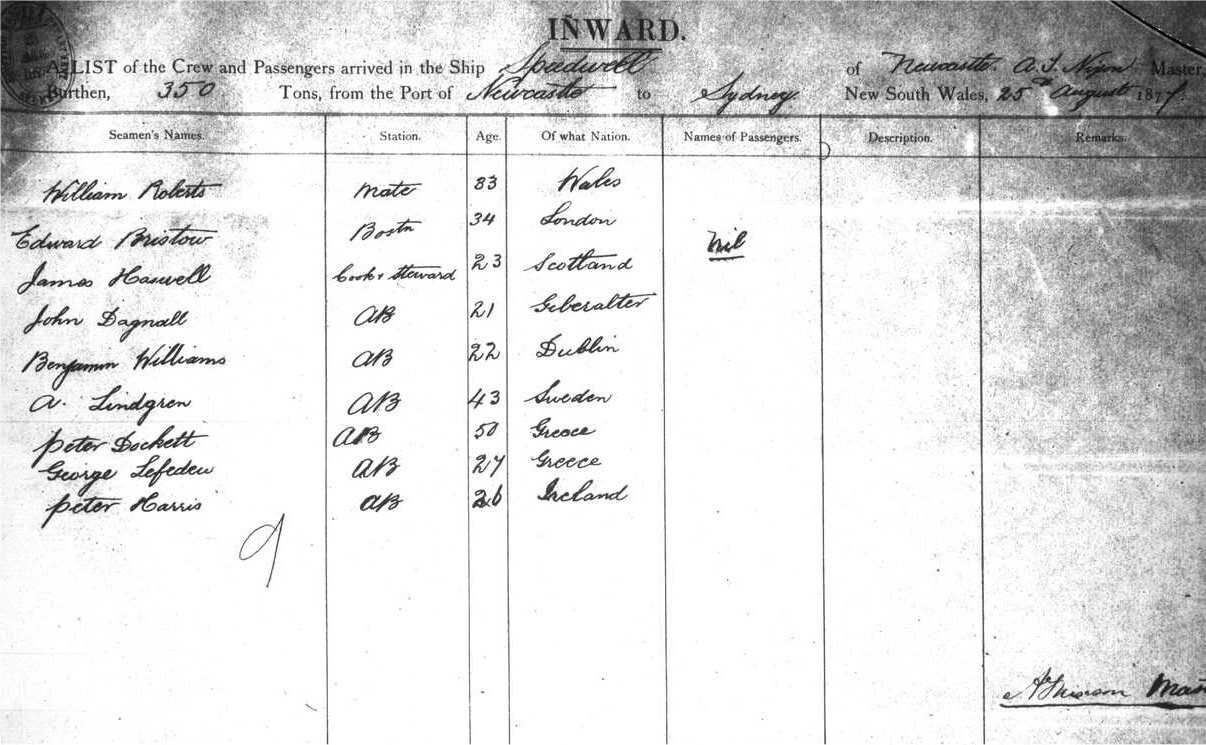 INWARD.
A LIST of the Crew and Passengers arrived in the Ship Speedwell of Newcastle A. T. Nixon Master,
Burthen, 350 Tons, from the Port of Newcastle to Sydney New South Wales, 25th August 187
Seamen's Names. Station. Age. Of what Nation. Names of Passengers. Description. Remarks.
William Roberts Mate 33 Wales
Edward Bristow Bostn 34 London
nil
James Haswell Cook & Steward 23 Scotland
John Dagnall AB 21 Geberalter
Benjamin Williams AB 22 Dublin
A. Lindgren AB 43 Sweden
Peter Dockett AB 50 Greece
George Lefedew AB 27 Greece
Peter Harris AB 26 Ireland
9
Nixon Mas